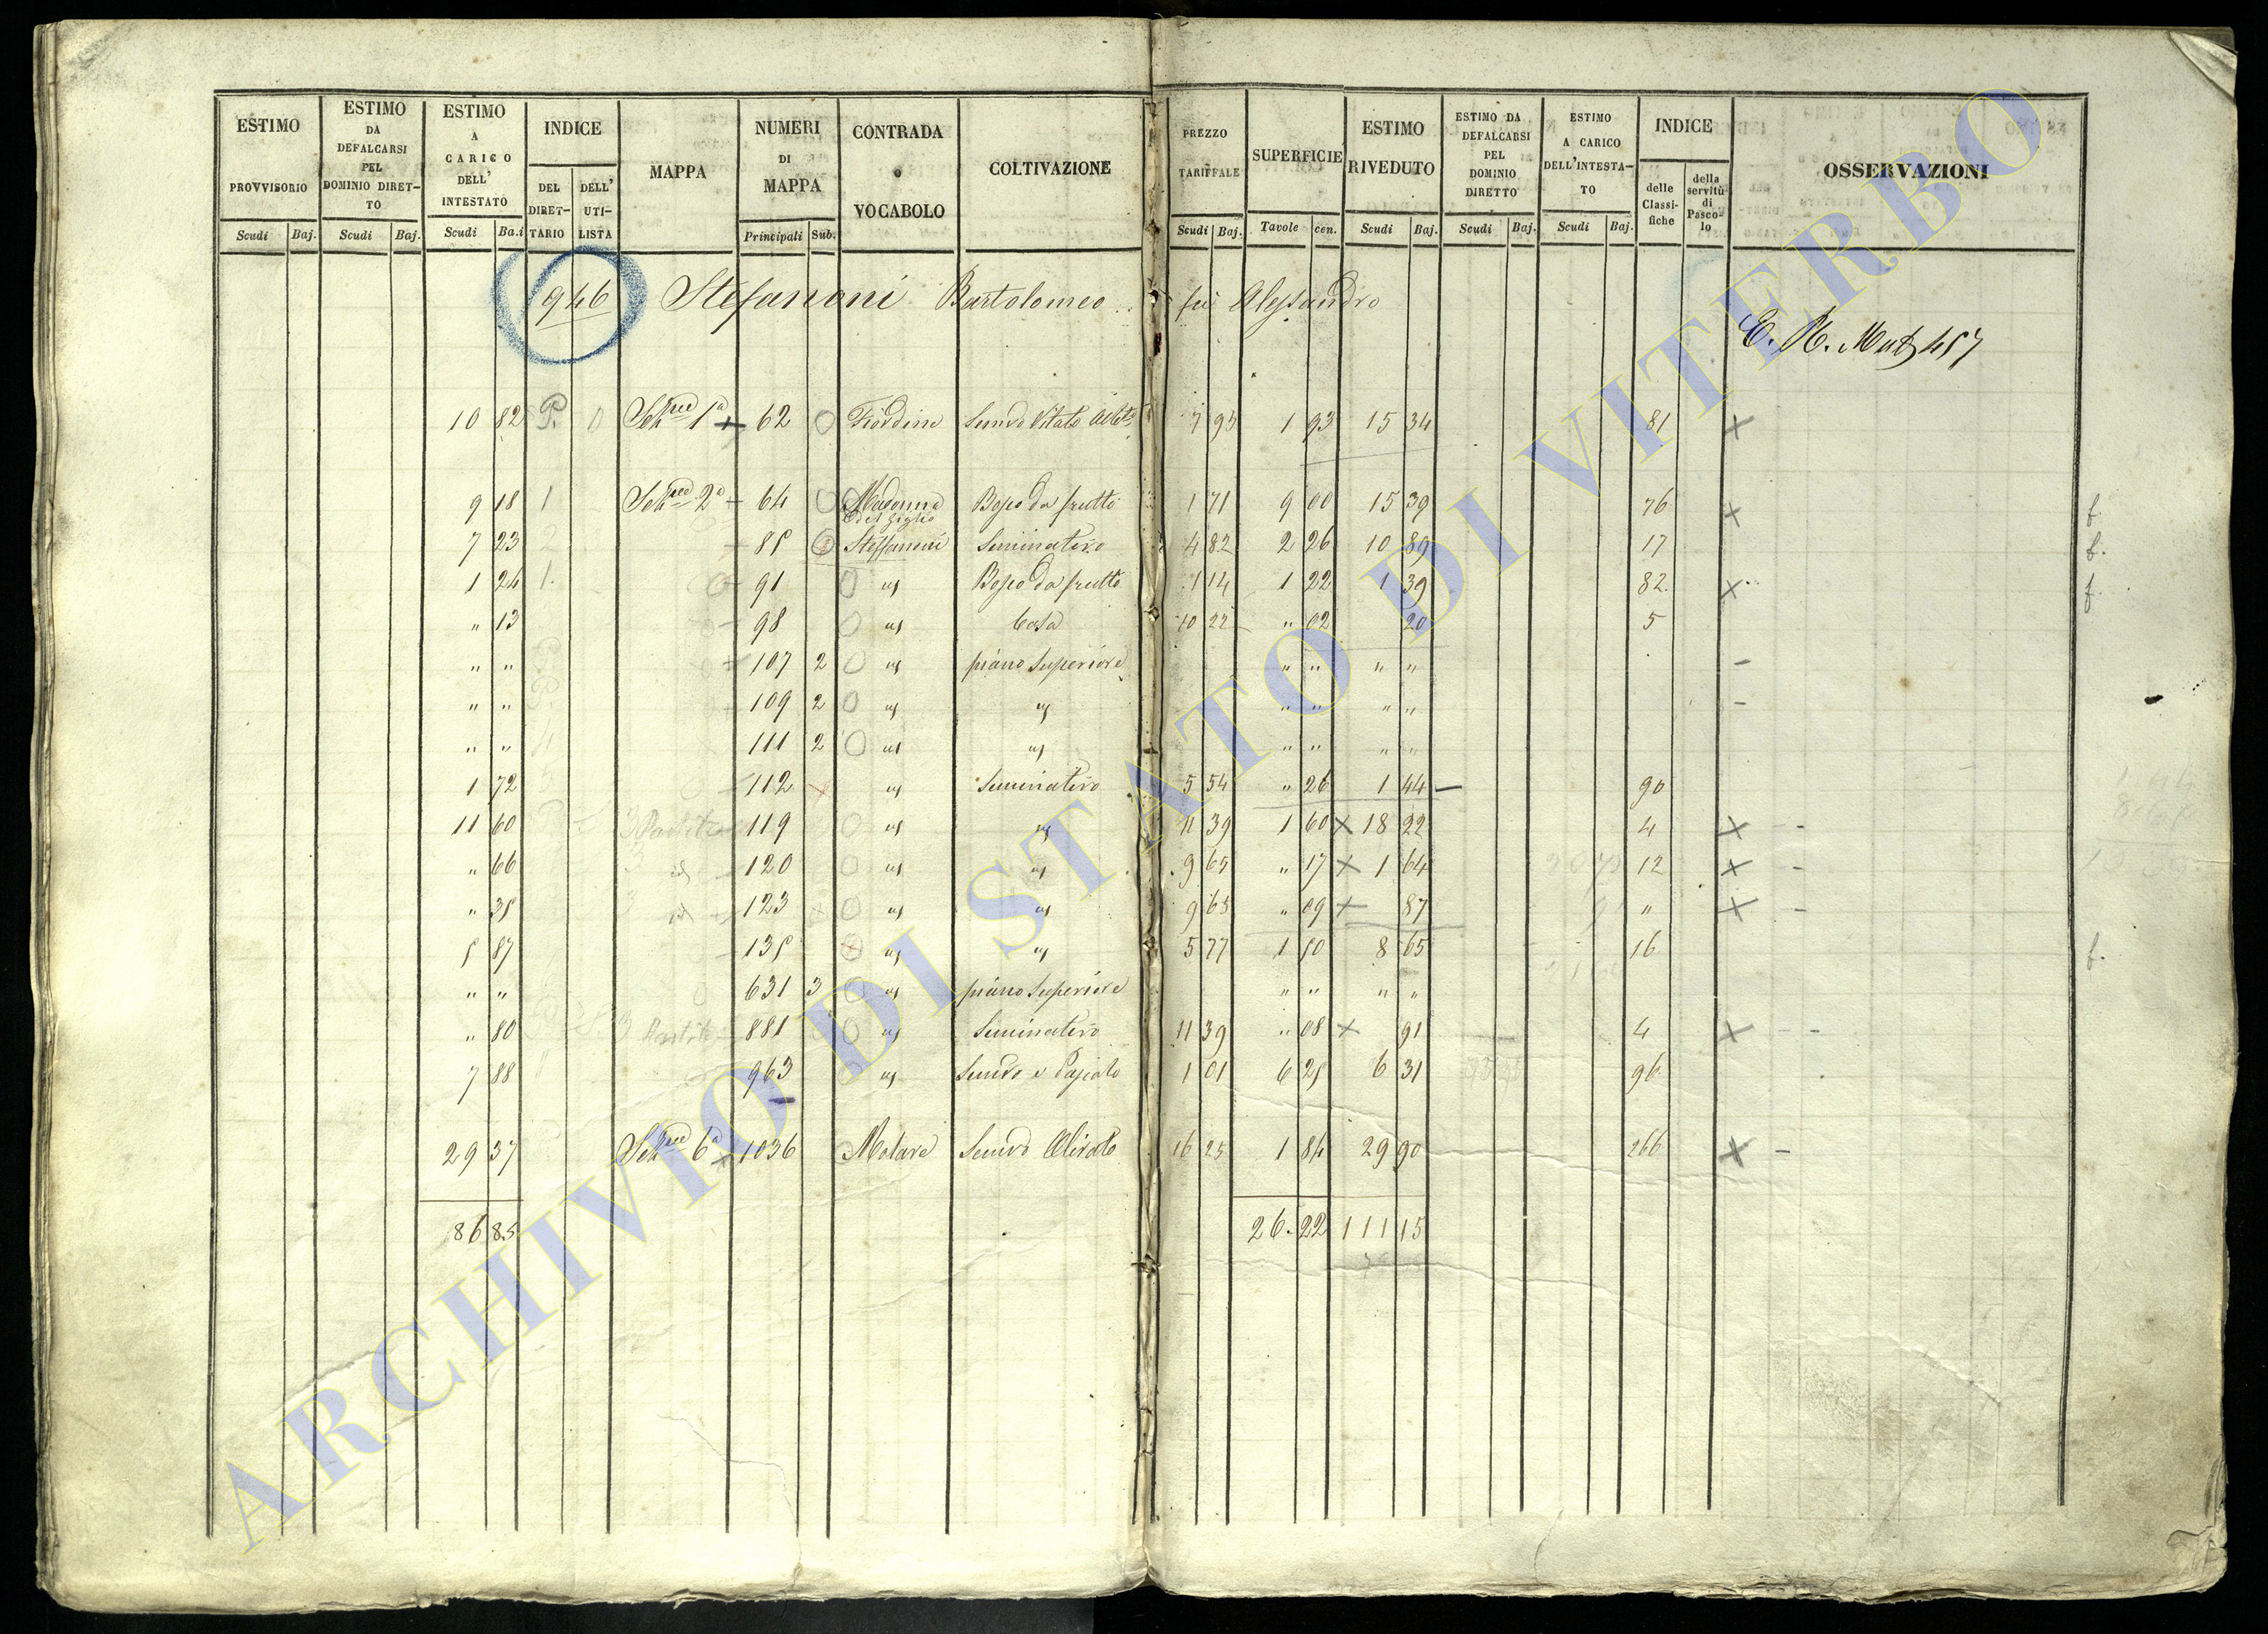 ESTIMO PROVVISORIO
ESTIMO DA DEFALCARSI PEL DOMINIO DIRETTO
ESTIMO A CARICO DELL' INTESTATO
INDICE
DEL DIRETTARIO
DELL' UTILISTA
MAPPA
NUMERI DI MAPPA
CONTRADA o VOCABOLO
COLTIVAZIONE
PREZZO TARIFFALE
SUPERFICIE
ESTIMO RIVEDUTO
ESTIMO DA DEFALCARSI PEL DOMINIO DIRETTO
ESTIMO A CARICO DELL'INTESTATO
INDICE
delle Classifiche
della servitù di Pascolo
OSSERVAZIONI
Scudi Baj. Scudi Baj. Scudi Ba.i Principali Sub. Scudi Baj. Tavole cen. Scudi Baj. Scudi Baj. Scudi Baj.
946 Stefanoni Bartolomeo fu Alessandro
10 82 P. 0 1a + 62 Fiordine Semvo Vitato 7 95 1 93 15 34 81 x
9 18 1 2a 64 Madonna del Giglio Bosco da frutto 1 71 9 00 15 39 76 x f.
7 23 2 85 Steffanoni Seminativo 4 82 2 26 10 89 17 f.
1 24 1. 91 Bosco da frutto 1 14 1 22 1 39 82 x f.
" 13 98 Casa 10 22 " 02 20 5
" " 107 2 piano Superiore " " " " -
" " 109 2 " " " " -
" " 111 2 " " " "
1 72 112 Seminativo 5 54 " 26 1 44 90
11 60 119 11 39 1 60 x 18 22 4 x -
" 66 120 9 65 " 17 x 1 64 12 x -
" 35 123 9 65 " 09 x 87 " x -
5 87 135 5 77 1 50 8 65 16 f.
" " 631 3 piano Superiore " " " "
" 80 881 Seminativo 11 39 " 08 x 91 4 x -
7 88 963 Semvo e Pascolo 1 01 6 25 6 31 96
29 37 6a 1036 Semvo Olivato 16 25 1 84 29 90 266 x -
86 85 26. 22 111 15
ARCHIVIO DI STATO DI VITERBO